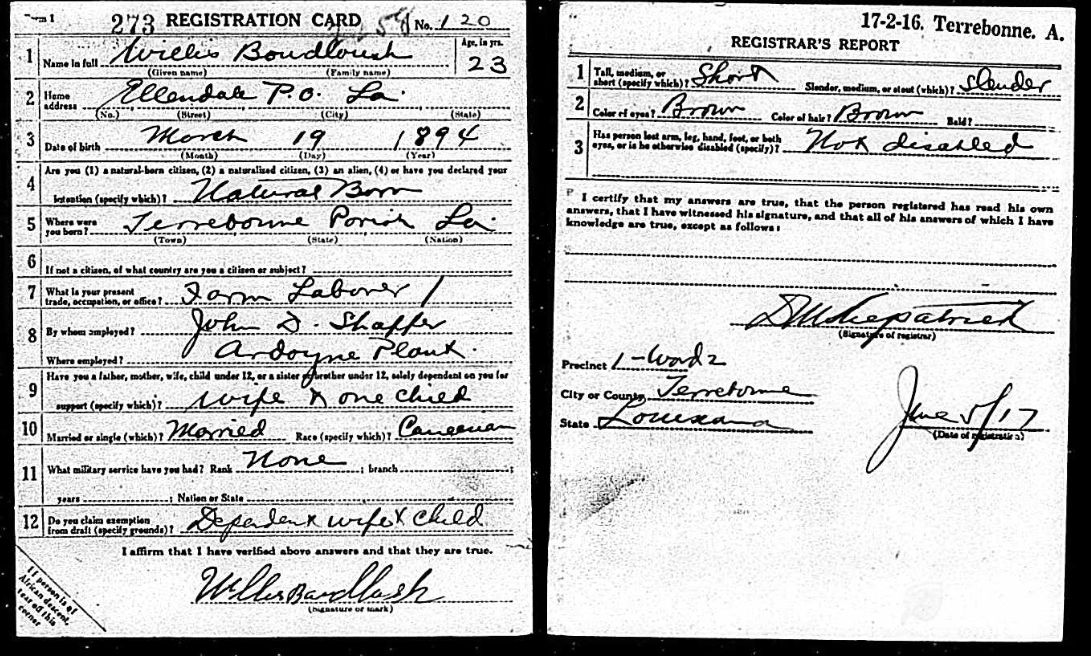 Form 1
273 REGISTRATION CARD 58 No. 120
1 Name in full Willis Boudloush Age, in yrs. 23
(Given name) (Family name)
2 Home address Ellendale P.O. La.
(No.) (Street) (City) (State)
3 Date of birth March 19 1894
(Month) (Day) (Year)
Are you (1) a natural-born citizen, (2) a naturalized citizen, (3) an alien, (4) or have you declared your
4 intention (specify which)? Natural Born
5 Where were you born? Terrebonne Parish La.
(Town) (State) (Nation)
6 If not a citizen, of what country are you a citizen or subject?
7 What is your present trade, occupation, or office? Farm Laborer 1
8 By whom employed? John D. Shaffer
Where employed? Ardoyne Plant.
9 Have you a father, mother, wife, child under 12, or a sister or brother under 12, solely dependent on you for
support (specify which)? wife & one child
10 Married or single (which)? Married Race (specify which)? Caucasian
11 What military service have you had? Rank None ; branch ;
years ; Nation or State
12 Do you claim exemption from draft (specify grounds)? Dependent wife & child
I affirm that I have verified above answers and that they are true.
Willis Boudloush
(Signature or mark)
If person is of
African descent,
tear off this
corner
17-2-16. Terrebonne. A.
REGISTRAR'S REPORT
1 Tall, medium, or short (specify which)? Short Slender, medium, or stout (which)? Slender
2 Color of eyes? Brown Color of hair? Brown Bald?
3 Has person lost arm, leg, hand, foot, or both
eyes, or is he otherwise disabled (specify)? Not disabled
I certify that my answers are true, that the person registered has read his own
answers, that I have witnessed his signature, and that all of his answers of which I have
knowledge are true, except as follows:
(Signature of registrar)
Precinct 1-Ward 2
City or County Terrebonne
State Louisiana
June 5/17
(Date of registration)